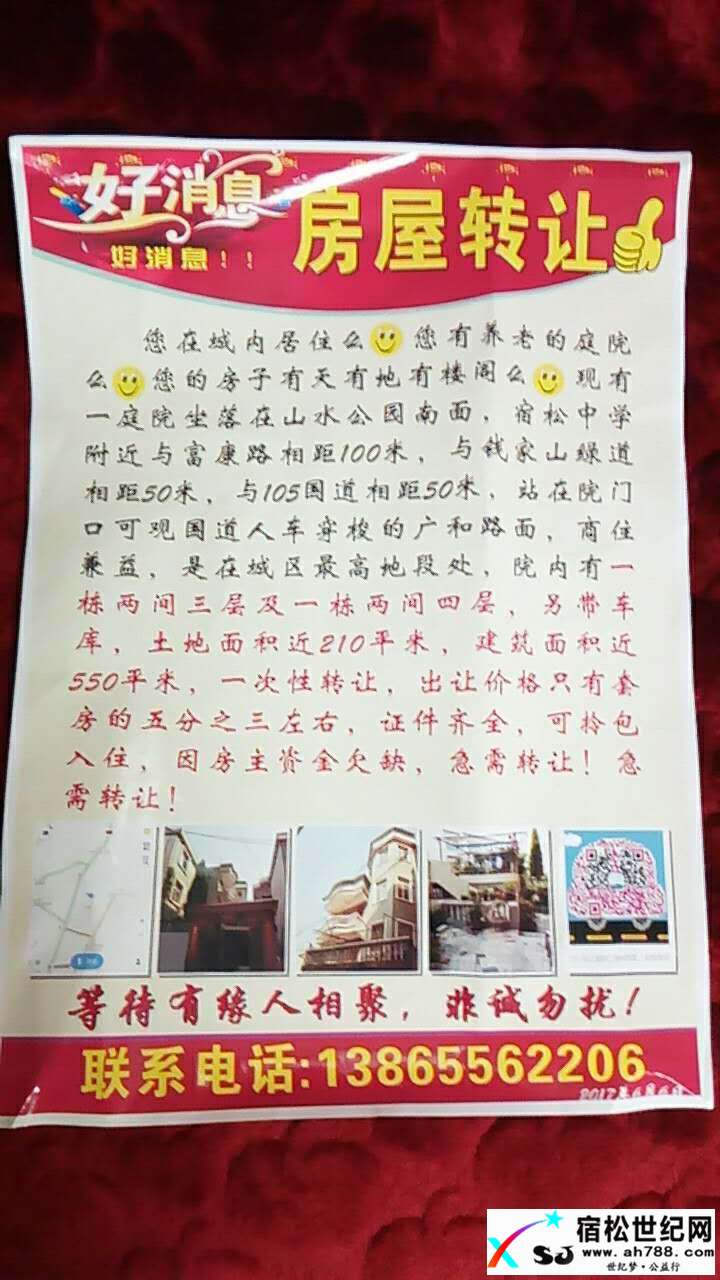 好消息
好消息！！
房屋转让
您在城内居住么 您有养老的庭院
么 您的房子有天有地有楼阁么 现有
一庭院坐落在山水公园南面，宿松中学
附近与富康路相距100米，与钱家山绿道
相距50米，与105国道相距50米，站在院门
口可观国道人车穿梭的广和路面，商住
兼益，是在城区最高地段处，院内有一
栋两间三层及一栋两间四层，另带车
库，土地面积近210平米，建筑面积近
550平米，一次性转让，出让价格只有套
房的五分之三左右，证件齐全，可拎包
入住，因房主资金欠缺，急需转让！急
需转让！
等待有缘人相聚，非诚勿扰！
联系电话:13865562206
宿松世纪网
SJ
www.ah788.com
世纪梦·公益行